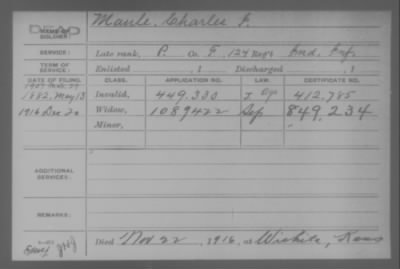 NAME OF SOLDIER: Maule, Charles F.
SERVICE: Late rank, P. Co. F, 124 Reg't Ind. Inf.
TERM OF SERVICE: Enlisted , 1 Discharged , 1
DATE OF FILING. CLASS. APPLICATION NO. LAW. CERTIFICATE NO.
1882, May 13 Invalid, 449.330 412,785
1916 Dec 20 Widow, 1089422 849,234
Minor,
ADDITIONAL SERVICES:
REMARKS:
Died Nov 22, 1916, at Wichita, Kans